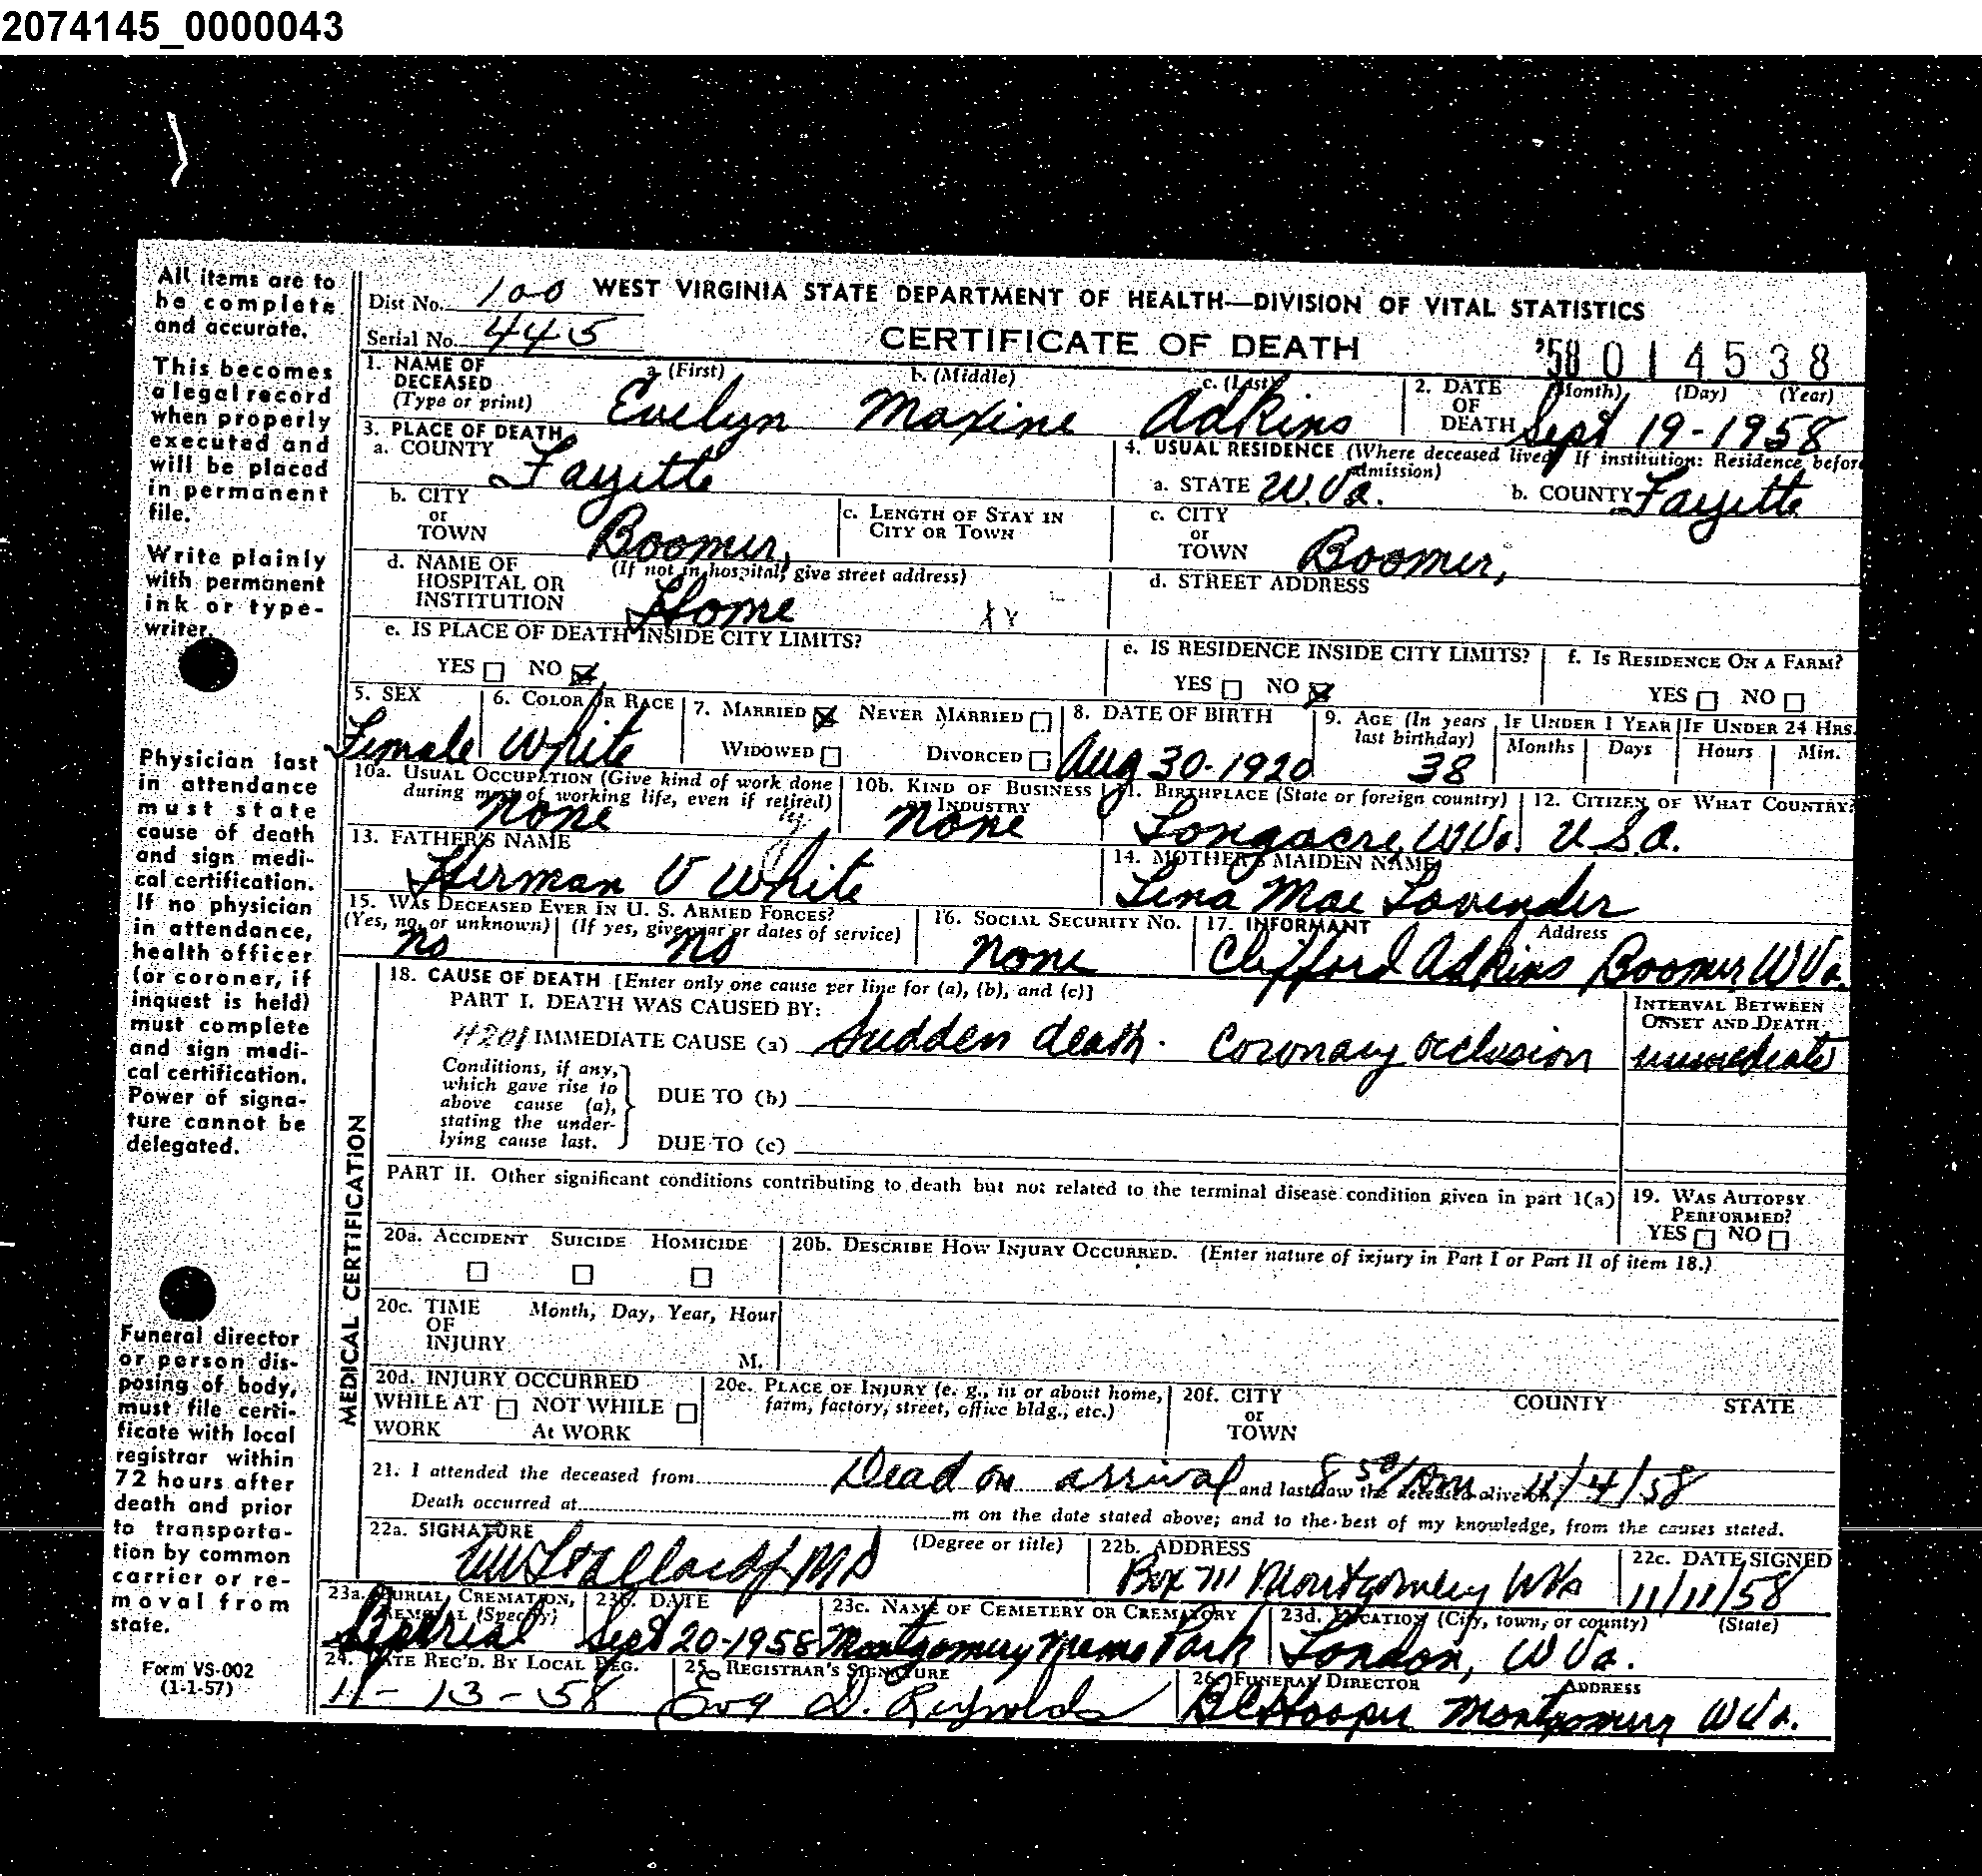 2074145_0000043
All items are to
be complete
and accurate.
This becomes
a legal record
when properly
executed and
will be placed
in permanent
file.
Write plainly
with permanent
ink or type-
writer.
Physician last
in attendance
must state
cause of death
and sign medi-
cal certification.
If no physician
in attendance,
health officer
(or coroner, if
inquest is held)
must complete
and sign medi-
cal certification.
Power of signa-
ture cannot be
delegated.
Funeral director
or person dis-
posing of body,
must file certi-
ficate with local
registrar within
72 hours after
death and prior
to transporta-
tion by common
carrier or re-
moval from
state.
Form VS-002
(1-1-57)
Dist No. 100 WEST VIRGINIA STATE DEPARTMENT OF HEALTH—DIVISION OF VITAL STATISTICS
Serial No. 445 CERTIFICATE OF DEATH '58 014538
1. NAME OF DECEASED (Type or print) a. (First) b. (Middle) c. (Last) Evelyn Maxine Adkins
2. DATE OF DEATH (Month) (Day) (Year) Sept 19-1958
3. PLACE OF DEATH
a. COUNTY Fayette
4. USUAL RESIDENCE (Where deceased lived. If institution: Residence before admission)
a. STATE W.Va. b. COUNTY Fayette
b. CITY or TOWN Boomer, c. LENGTH OF STAY IN CITY OR TOWN
c. CITY or TOWN Boomer,
d. NAME OF HOSPITAL OR INSTITUTION (If not in hospital, give street address) Home
d. STREET ADDRESS
e. IS PLACE OF DEATH INSIDE CITY LIMITS?
YES NO
e. IS RESIDENCE INSIDE CITY LIMITS?
YES NO
f. IS RESIDENCE ON A FARM?
YES NO
5. SEX Female
6. COLOR OR RACE White
7. MARRIED NEVER MARRIED
WIDOWED DIVORCED
8. DATE OF BIRTH Aug 30-1920
9. AGE (In years last birthday) 38
IF UNDER 1 YEAR Months Days
IF UNDER 24 HRS. Hours Min.
10a. USUAL OCCUPATION (Give kind of work done during most of working life, even if retired) None
10b. KIND OF BUSINESS OR INDUSTRY None
11. BIRTHPLACE (State or foreign country) Longacre, W.Va.
12. CITIZEN OF WHAT COUNTRY? U.S.A.
13. FATHER'S NAME Herman V White
14. MOTHER'S MAIDEN NAME Lena Mae Lavender
15. WAS DECEASED EVER IN U. S. ARMED FORCES?
(Yes, no, or unknown) no (If yes, give war or dates of service) no
16. SOCIAL SECURITY NO. None
17. INFORMANT Address Clifford Adkins Boomer W Va.
MEDICAL CERTIFICATION
18. CAUSE OF DEATH [Enter only one cause per line for (a), (b), and (c)]
PART I. DEATH WAS CAUSED BY:
4201 IMMEDIATE CAUSE (a) Sudden death. Coronary occlusion
INTERVAL BETWEEN ONSET AND DEATH immediate
Conditions, if any, which gave rise to above cause (a), stating the underlying cause last.
DUE TO (b)
DUE TO (c)
PART II. Other significant conditions contributing to death but not related to the terminal disease condition given in part I(a)
19. WAS AUTOPSY PERFORMED?
YES NO
20a. ACCIDENT SUICIDE HOMICIDE
20b. DESCRIBE HOW INJURY OCCURRED. (Enter nature of injury in Part I or Part II of item 18.)
20c. TIME OF INJURY Month, Day, Year, Hour
M.
20d. INJURY OCCURRED
WHILE AT WORK NOT WHILE AT WORK
20e. PLACE OF INJURY (e. g., in or about home, farm, factory, street, office bldg., etc.)
20f. CITY or TOWN COUNTY STATE
21. I attended the deceased from Dead on arrival and last saw the deceased alive on 11/4/58
Death occurred at m on the date stated above; and to the best of my knowledge, from the causes stated.
22a. SIGNATURE (Degree or title) MD
22b. ADDRESS Box 711 Montgomery WVa
22c. DATE SIGNED 11/11/58
23a. BURIAL, CREMATION, REMOVAL (Specify) Burial
23b. DATE Sept 20-1958
23c. NAME OF CEMETERY OR CREMATORY Montgomery Memo Park
23d. LOCATION (City, town, or county) (State) London, W Va.
24. DATE REC'D. BY LOCAL REG. 11-13-58
25. REGISTRAR'S SIGNATURE Eva D. Reynolds
26. FUNERAL DIRECTOR ADDRESS Hooper Montgomery W Va.